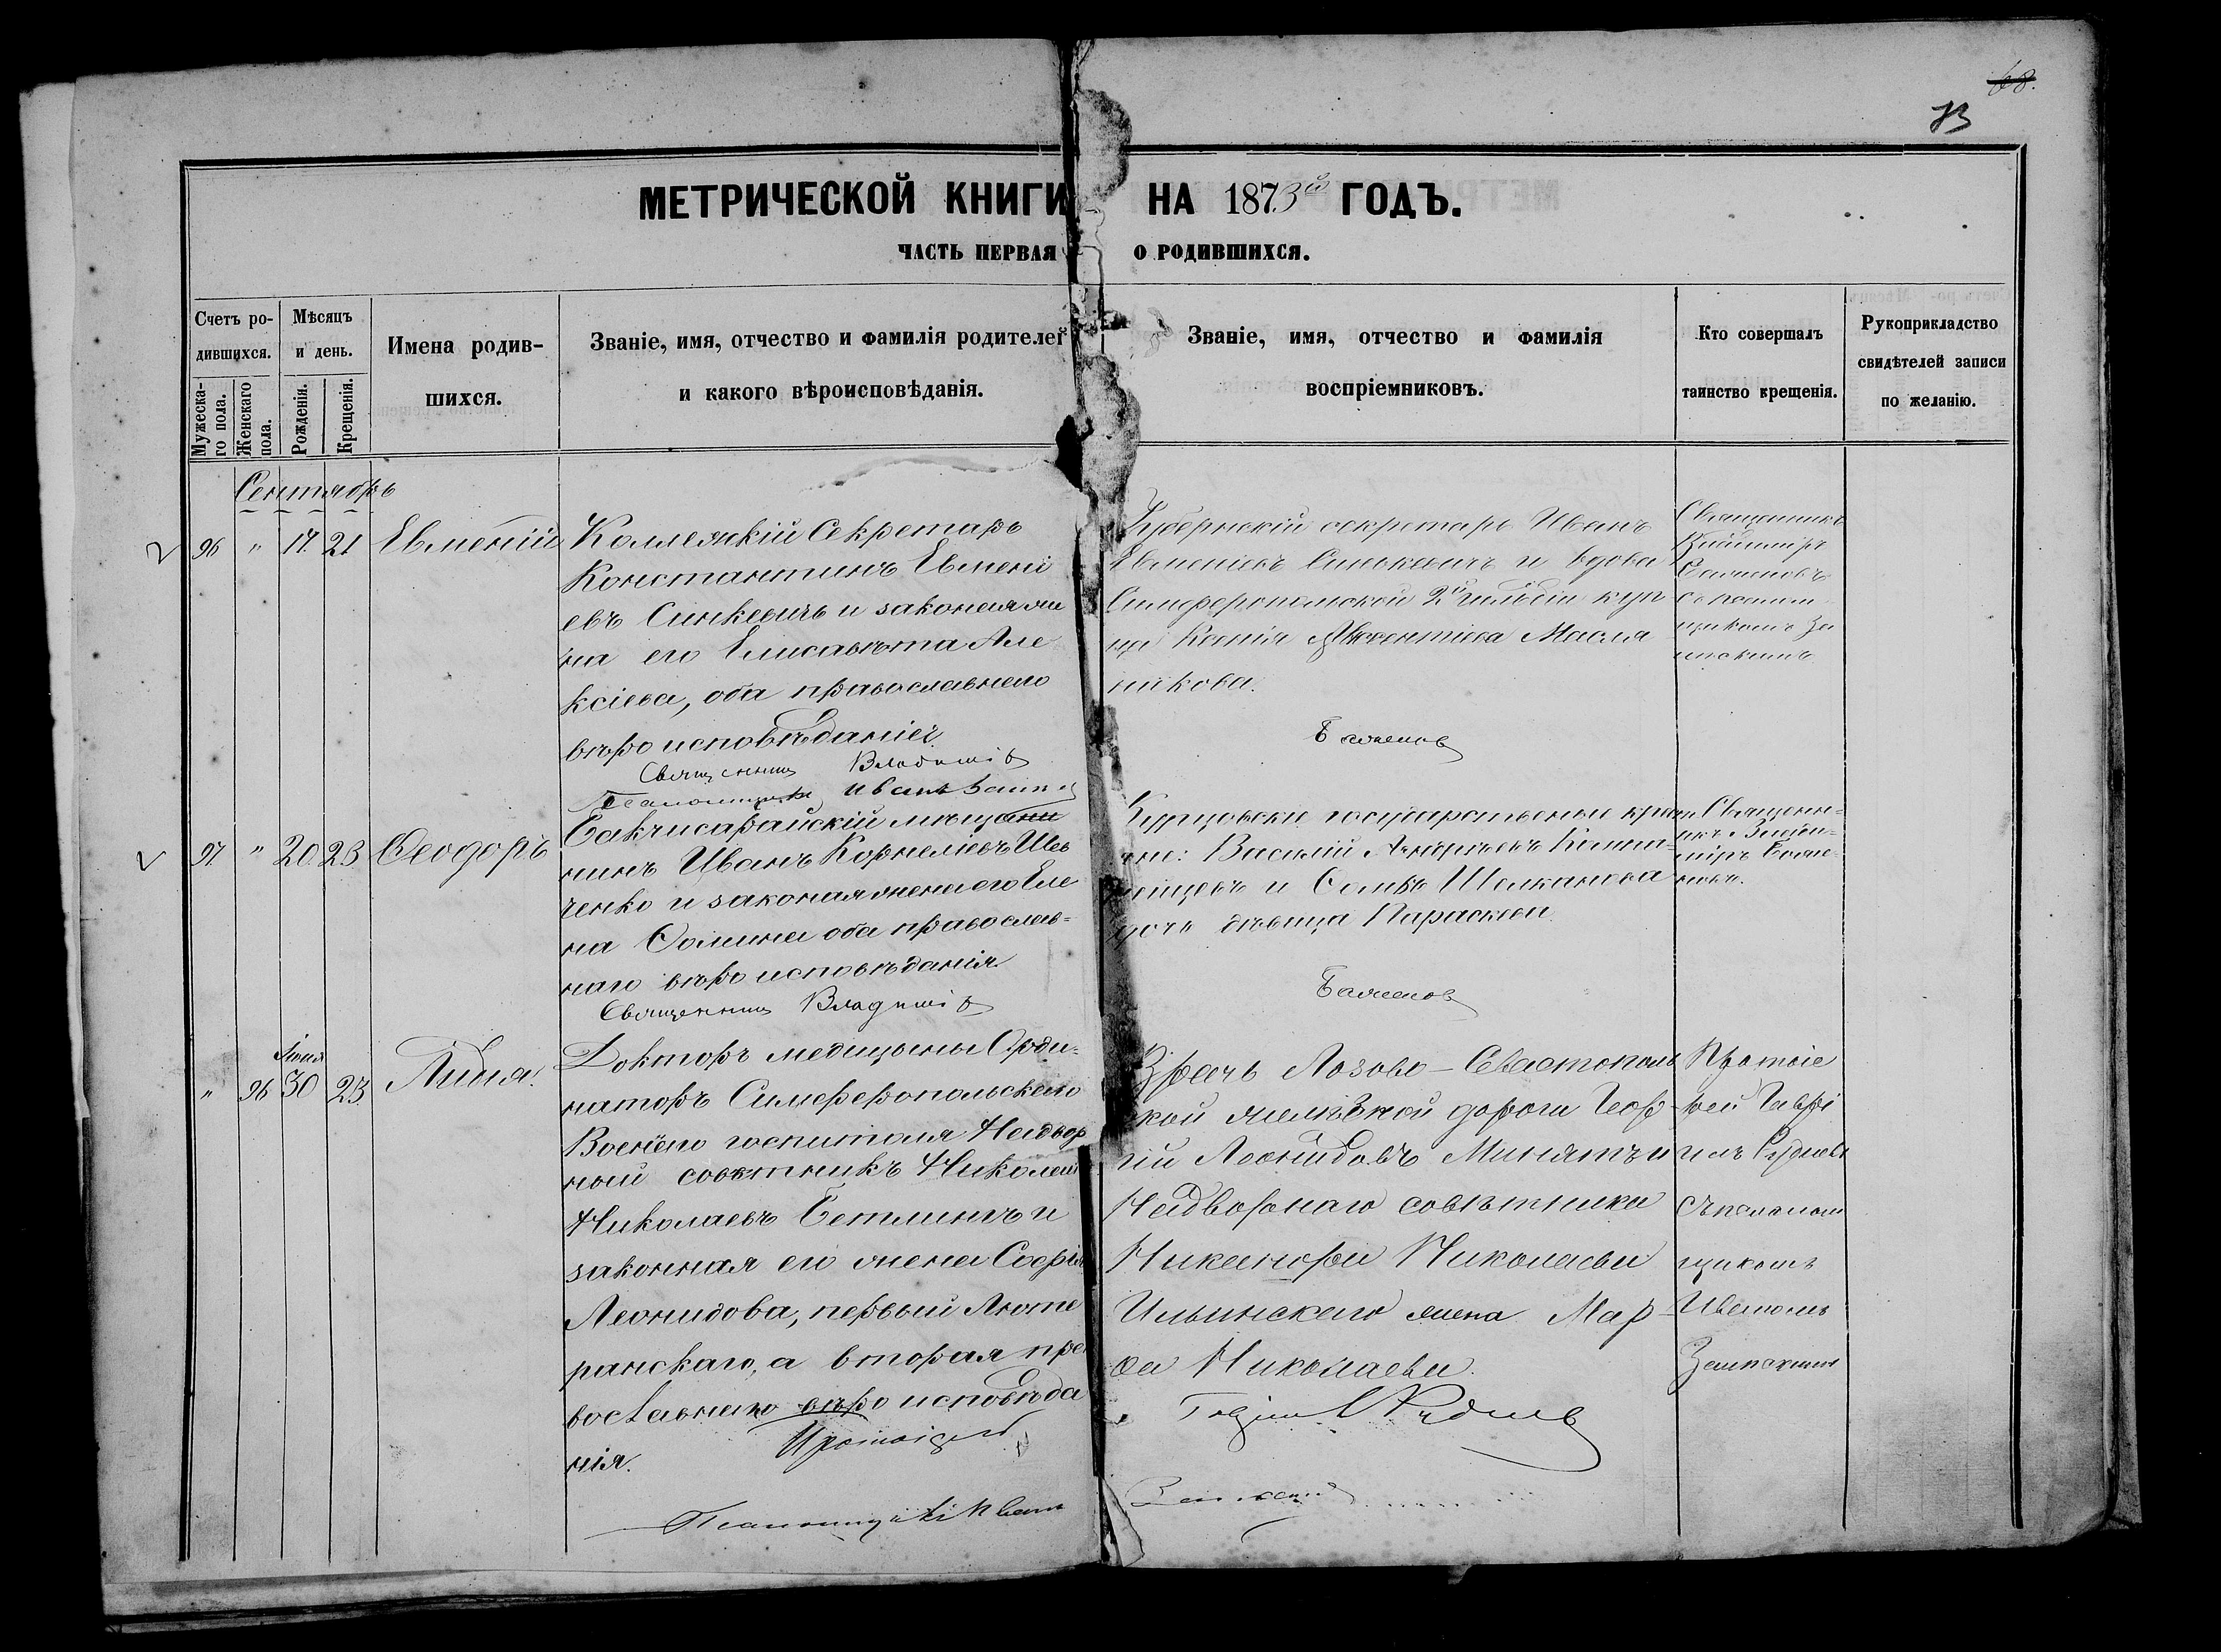 68.
73
МЕТРИЧЕСКОЙ КНИГИ НА 1873й ГОДЪ.
ЧАСТЬ ПЕРВАЯ О РОДИВШИХСЯ.
Счетъ ро-
дившихся.
Мужеска-
го пола.
Женскаго
пола.
Мѣсяцъ
и день.
Рожденія.
Крещенія.
Имена родив-
шихся.
Званіе, имя, отчество и фамилія родителей
и какого вѣроисповѣданія.
Званіе, имя, отчество и фамилія
воспріемниковъ.
Кто совершалъ
таинство крещенія.
Рукоприкладство
свидѣтелей записи
по желанію.
Сентябрь
96 " 17. 21 Евменій
Коллежкій Секретарь
Константинъ Евмені
евъ Синкевичъ и законая же
на его Елисавѣта Але
ксіева, оба православнаго
вѣроисповѣданія.
Священник Владимір
Псаломщик Иванъ
Губернскій секретарь Иванъ
Евменіевъ Синькевичъ и вдова
Симферопольской 2й гильдіи куп
ца Ксенія Масля
никова.
Баженов
Священникъ
Владиміръ
Баженовъ
съ псалом
щикомъ За
инскимъ
97 " 20 23 Ѳеодоръ
Бакчисарайскій мѣщани
нинъ Иванъ Корнеліевъ Шев
ченко и законая жена его Еле
на Ѳомина оба православ-
наго вѣроисповѣданія.
Священник Владимір
государственые крестья
не: Василій Андреевъ
и Ѳомы Шелканова
дочь дѣвица Параскева.
Баженов
Священн-
икъ Влади-
міръ Баже-
новъ.
" 96 Іюня 30 23 Лидія.
Докторъ медицыны Орди-
наторъ Симферопольскаго
Военаго госпиталя Надвор
ный совѣтникъ Николай
Николаевъ Бетлингъ и
законная его жена Софія
Леонидова, первый Люте
ранскаго, а вторая пра
вославнаго вѣроисповѣда
нія.
Протоіерей
Псаломщикъ Иванъ
Врачъ Лозово-Севастополь
ской желѣзной дороги Геор
гій Леонидовъ Минятъ и
Надворонаго совѣтника
Никанора Николаева
Ильинскаго жена Мар-
ѳа Николаева.
Гавріил Руднев
Заинскій
Протоіе
рей Гаврі
илъ Рудневъ
съ псалом
щикомъ
Иваномъ
Заинскимъ